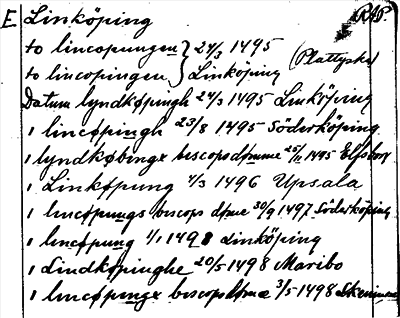 E Linköping RAP.
to lincopungen } 24/3 1495
to lincopingen } Linköping (Plattyska)
Datum lyndkøpingh 24/3 1495 Linköping
i lincøpingh 23/8 1495 Söderköping
i lyndkøbinge biscopsdømme 25/11 1495 Elfsborg
i Linkøpung 4/3 1496 Upsala
i lincøpungs biscops døme 30/9 1497 Söderköping
i lincøpung 1/1 1498 Linköping
i Lindkøpinghe 20/5 1498 Maribo
i lincøpinge biscopsdømæ 3/5 1498